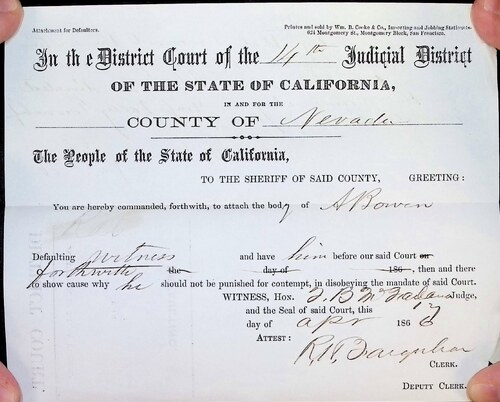 Attachment for Defaulters.
Printes and sold by Wm. B. Cooke & Co., Inventing and Jobbing Stationers,
624 Montgomery St., Montgomery Block, San Francisco.
In the District Court of the 14th Judicial District
OF THE STATE OF CALIFORNIA,
IN AND FOR THE
COUNTY OF Nevada
The People of the State of California,
TO THE SHERIFF OF SAID COUNTY, GREETING:
You are hereby commanded, forthwith, to attach the body of A Bowen
Defaulting witness and have him before our said Court on
forthwith the day of 186 , then and there
to show cause why he should not be punished for contempt, in disobeying the mandate of said Court.
WITNESS, Hon. T. B. McFarland Judge,
and the Seal of said Court, this
day of apr 186
ATTEST:
R. H. Farquhar
CLERK.
DEPUTY CLERK.